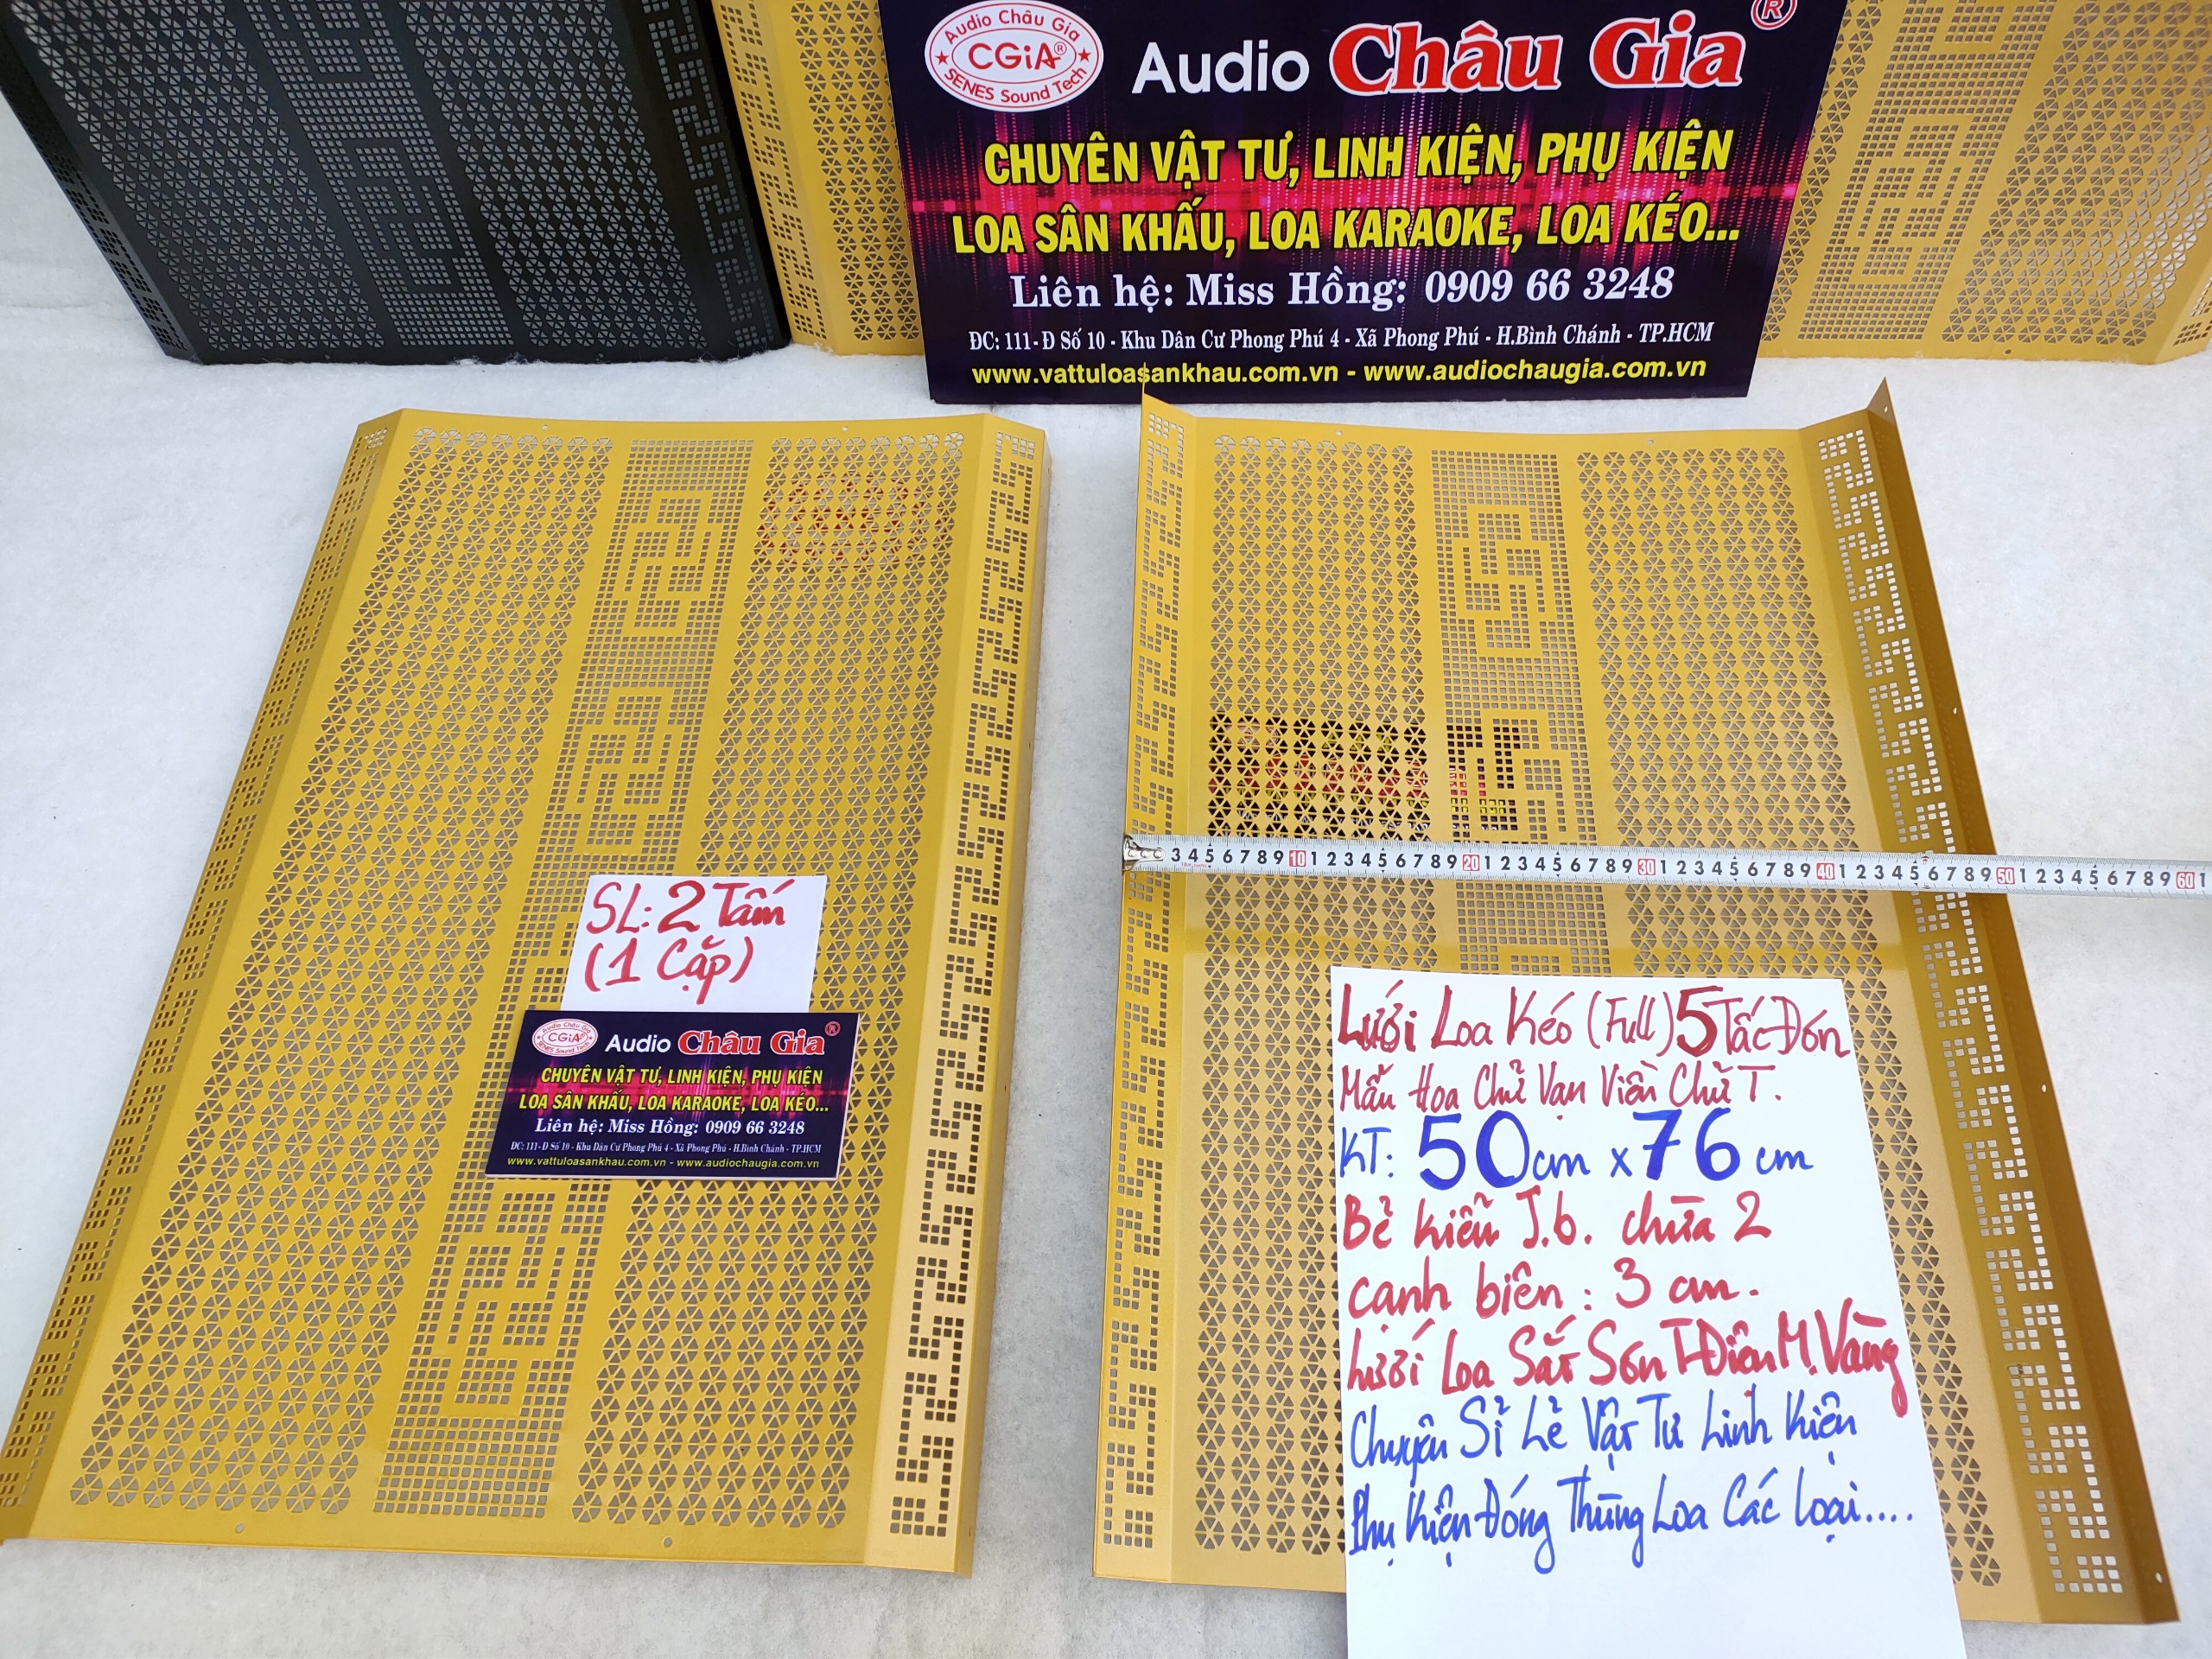 Audio Châu Gia
CGiA®
SENES Sound Tech
Audio Châu Gia ®
CHUYÊN VẬT TƯ, LINH KIỆN, PHỤ KIỆN
LOA SÂN KHẤU, LOA KARAOKE, LOA KÉO...
Liên hệ: Miss Hồng: 0909 66 3248
ĐC: 111- Đ Số 10 - Khu Dân Cư Phong Phú 4 - Xã Phong Phú - H.Bình Chánh - TP.HCM
www.vattuloasankhau.com.vn - www.audiochaugia.com.vn
3 4 5 6 7 8 9 10 1 2 3 4 5 6 7 8 9 20 1 2 3 4 5 6 7 8 9 30 1 2 3 4 5 6 7 8 9 40 1 2 3 4 5 6 7 8 9 50 1 2 3 4 5 6 7 8 9 60 1
SL: 2 Tấm
(1 Cặp)
Audio Châu Gia
CGiA®
SENES Sound Tech
Audio Châu Gia ®
CHUYÊN VẬT TƯ, LINH KIỆN, PHỤ KIỆN
LOA SÂN KHẤU, LOA KARAOKE, LOA KÉO...
Liên hệ: Miss Hồng: 0909 66 3248
ĐC: 111- Đ Số 10 - Khu Dân Cư Phong Phú 4 - Xã Phong Phú - H.Bình Chánh - TP.HCM
www.vattuloasankhau.com.vn - www.audiochaugia.com.vn
Lưới Loa Kéo (Full) 5 Tấc Đơn
Mẫu Hoa Chữ Vạn Viền Chữ T.
KT: 50cm x 76 cm
Bẻ kiểu J.b. chừa 2
cạnh biên : 3 cm.
Lưới Loa Sắt Sơn T Điện M. Vàng
Chuyên Sỉ Lẻ Vật Tư Linh Kiện
Phụ Kiện Đóng Thùng Loa Các Loại....